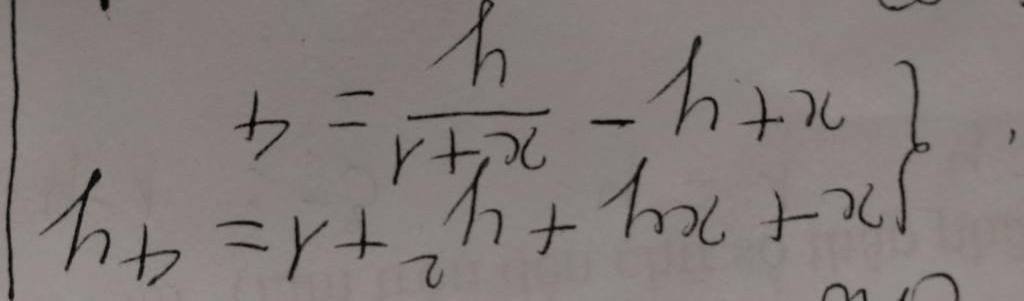 x + xy + y² + 1 = 4y
x + y - \frac{x+1}{y} = 4